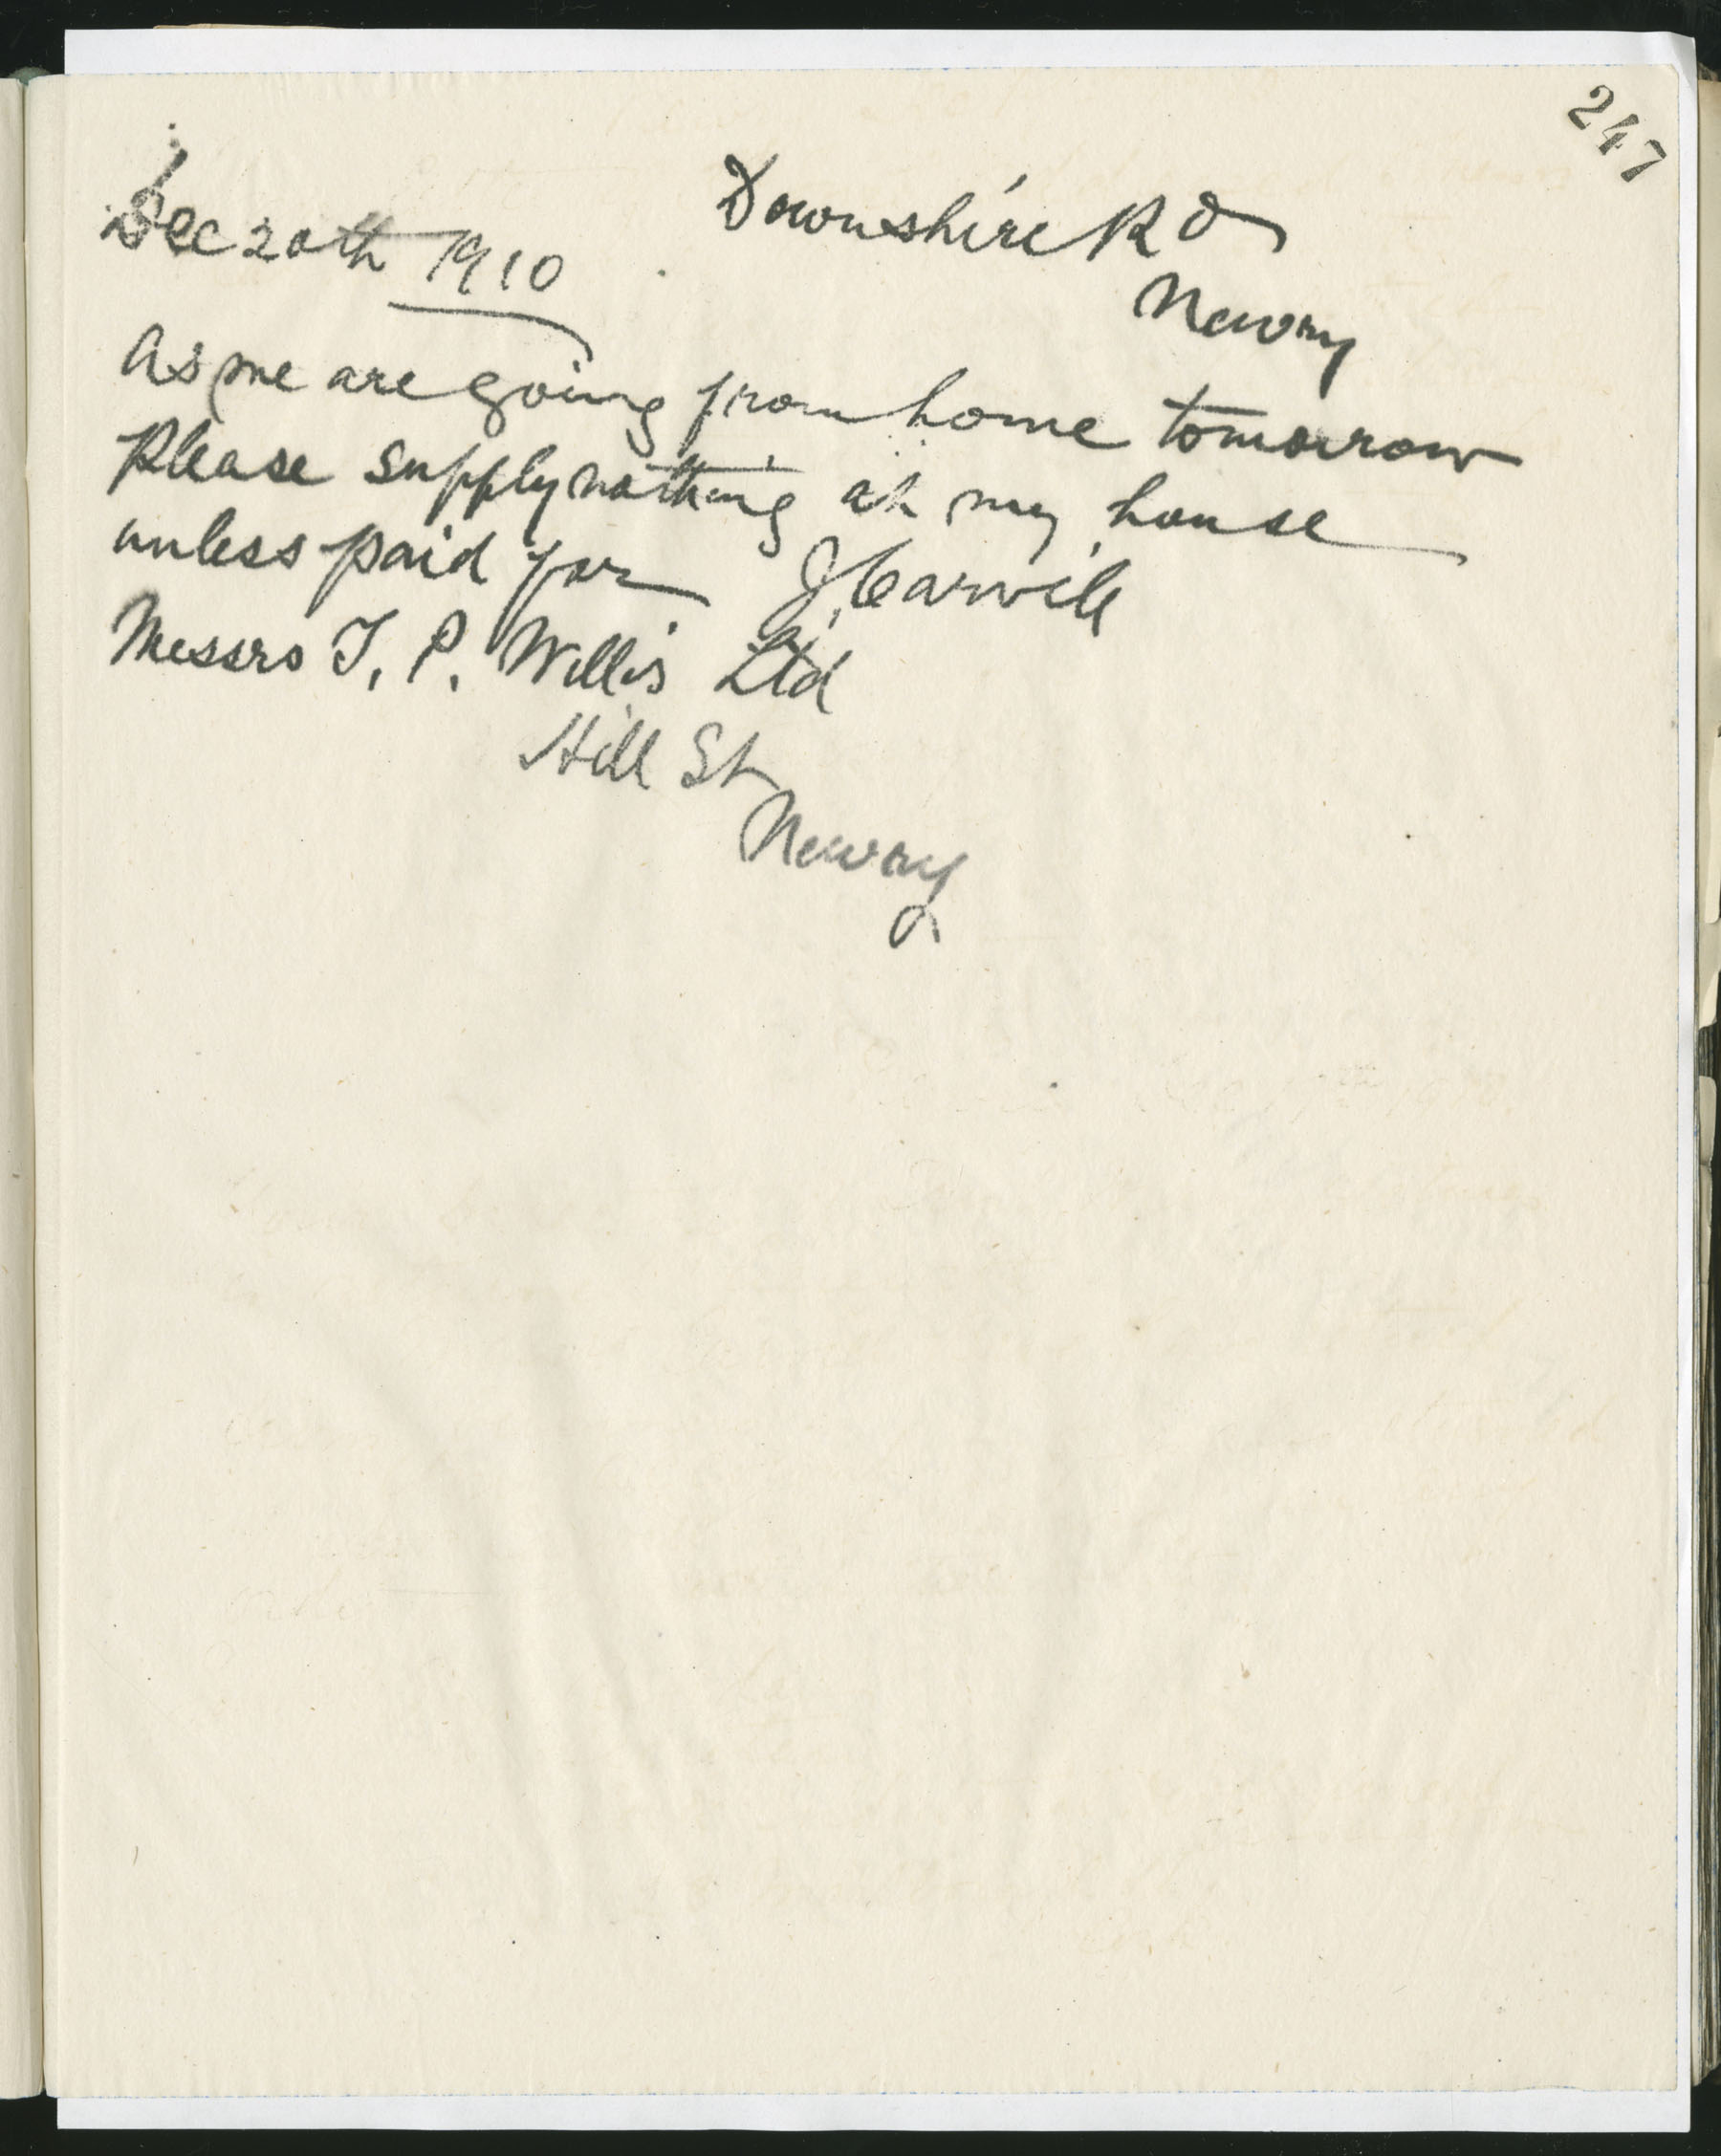 247
Downshire Rd
Dec 20th 1910
Newry
As we are going from home tomorrow
Please supply nothing at my house
unless paid for J. Carvill
Messrs T. P. Willis Ltd
Hill St
Newry